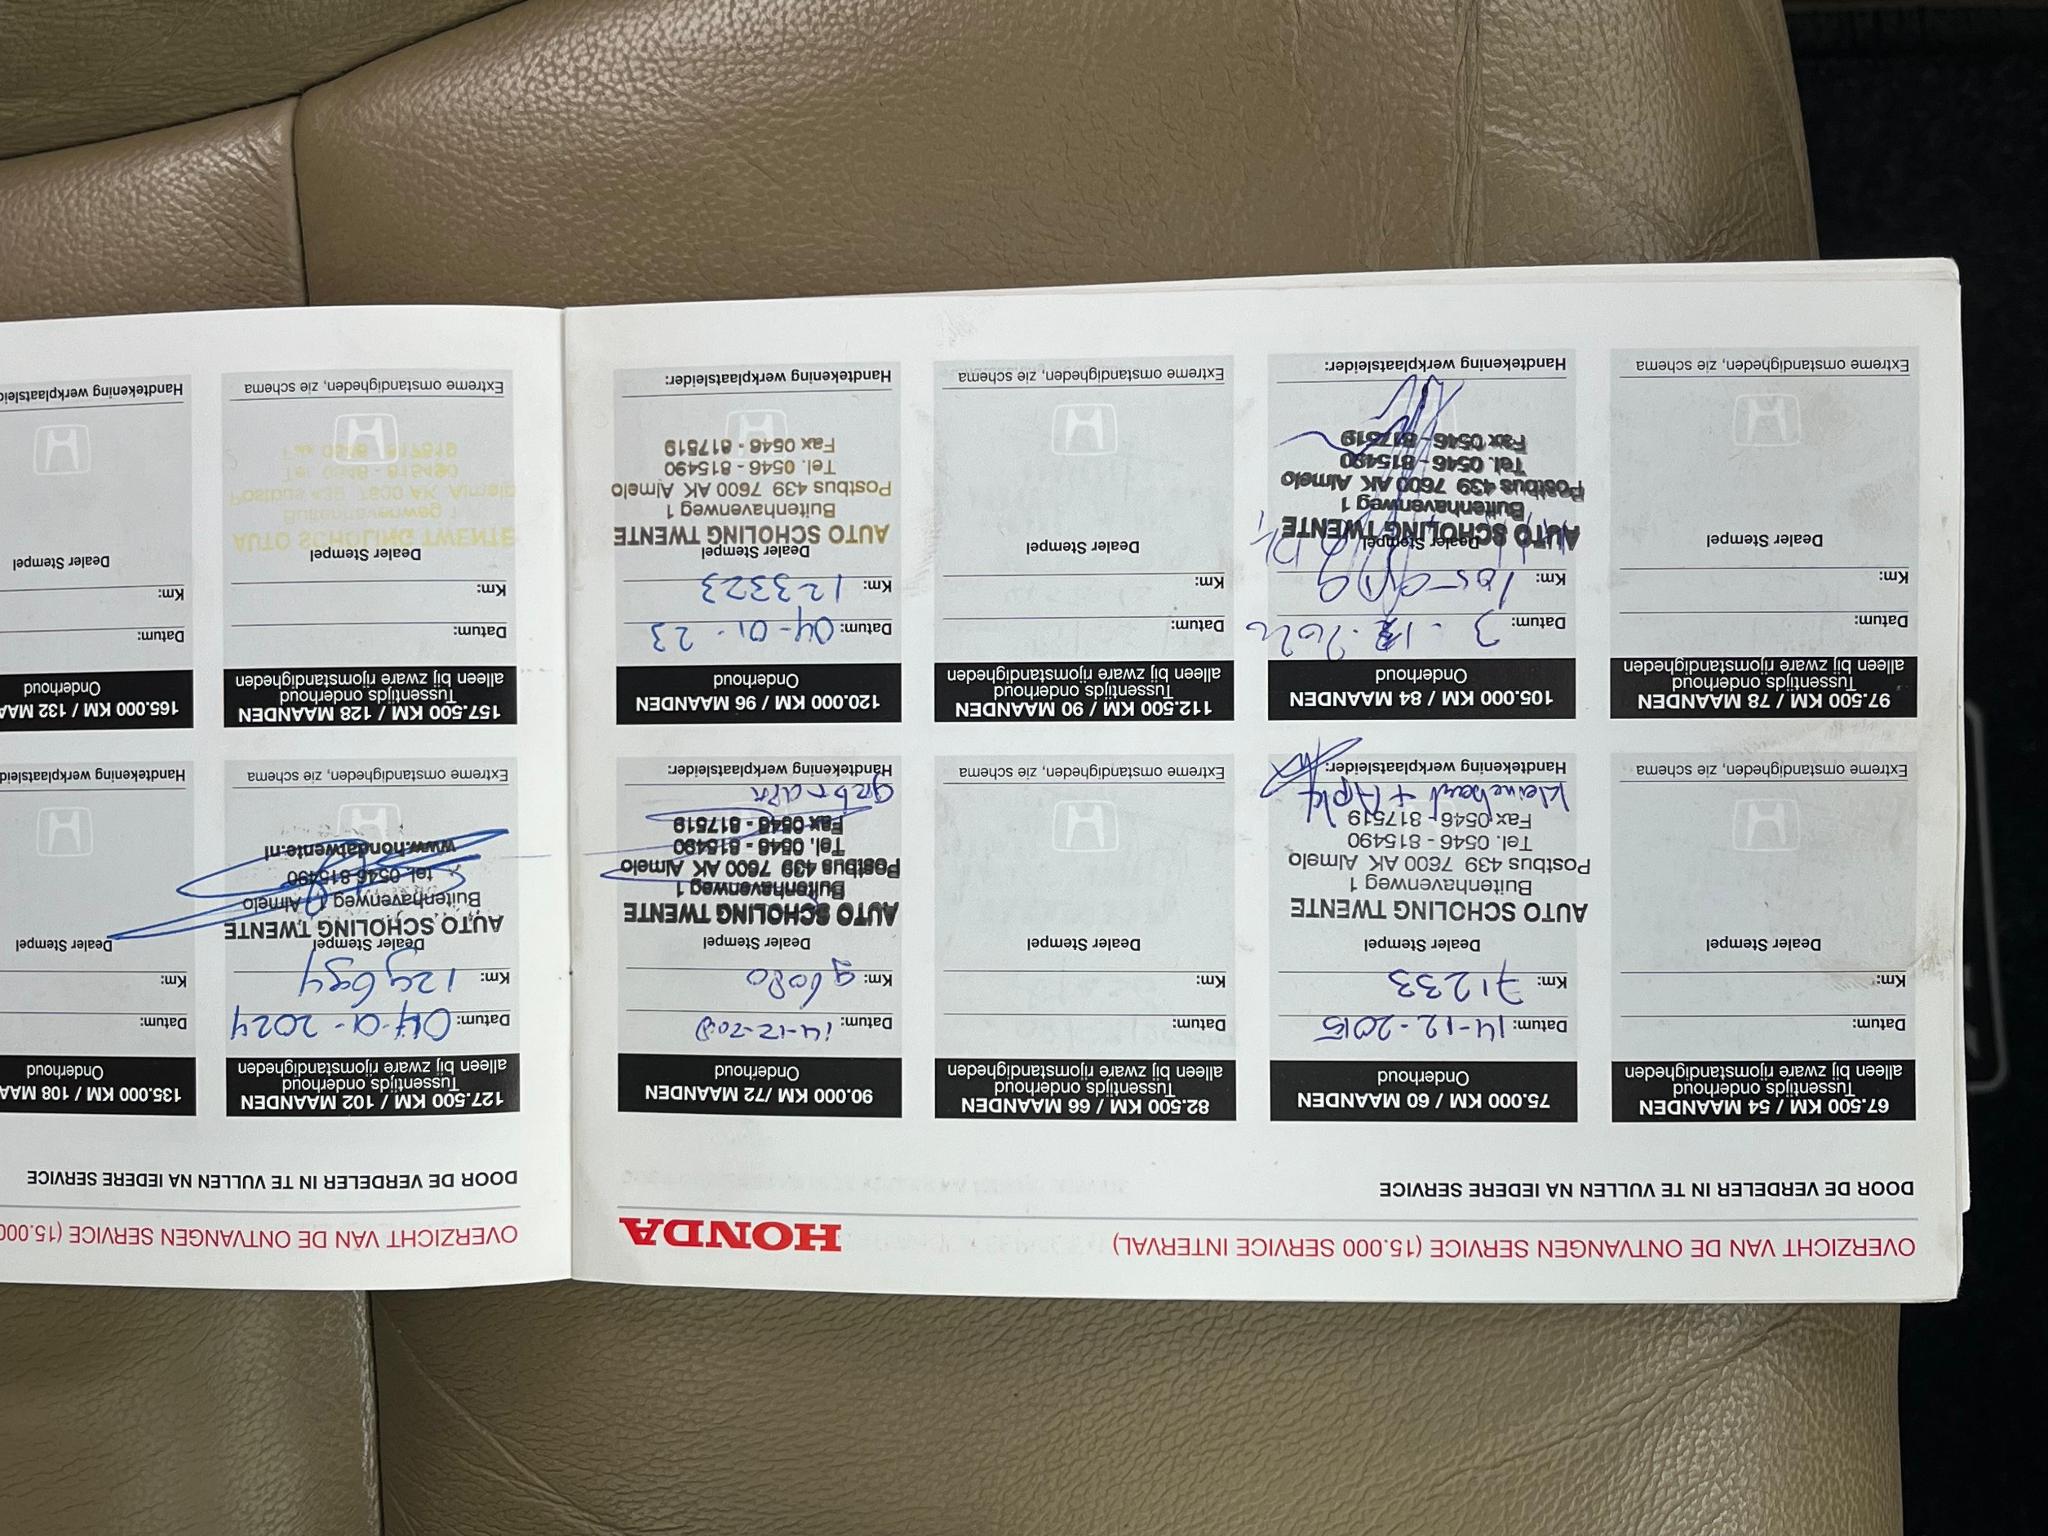 OVERZICHT VAN DE ONTVANGEN SERVICE (15.000 SERVICE INTERVAL)
HONDA
DOOR DE VERDELER IN TE VULLEN NA IEDERE SERVICE
67.500 KM / 54 MAANDEN
Tussentijds onderhoud
alleen bij zware rijomstandigheden
Datum:
Km:
Dealer Stempel
Extreme omstandigheden, zie schema
75.000 KM / 60 MAANDEN
Onderhoud
Datum: 14-12-2015
Km: 71233
Dealer Stempel
AUTO SCHOLING TWENTE
Buitenhavenweg 1
Postbus 439 7600 AK Almelo
Tel. 0546 - 815490
Fax 0546 - 817519
Kleinebeurt + Apk
Handtekening werkplaatsleider:
82.500 KM / 66 MAANDEN
Tussentijds onderhoud
alleen bij zware rijomstandigheden
Datum:
Km:
Dealer Stempel
Extreme omstandigheden, zie schema
90.000 KM /72 MAANDEN
Onderhoud
Datum:
Km: 96080
Dealer Stempel
AUTO SCHOLING TWENTE
Buitenhavenweg 1
Postbus 439 7600 AK Almelo
Tel. 0546 - 815490
Fax 0546 - 817519
Handtekening werkplaatsleider:
97.500 KM / 78 MAANDEN
Tussentijds onderhoud
alleen bij zware rijomstandigheden
Datum:
Km:
Dealer Stempel
Extreme omstandigheden, zie schema
105.000 KM / 84 MAANDEN
Onderhoud
Datum:
Km:
Dealer Stempel
AUTO SCHOLING TWENTE
Buitenhavenweg 1
Postbus 439 7600 AK Almelo
Tel. 0546 - 815490
Fax 0546 - 817519
Handtekening werkplaatsleider:
112.500 KM / 90 MAANDEN
Tussentijds onderhoud
alleen bij zware rijomstandigheden
Datum:
Km:
Dealer Stempel
Extreme omstandigheden, zie schema
120.000 KM / 96 MAANDEN
Onderhoud
Datum: 04-01-23
Km: 123323
Dealer Stempel
AUTO SCHOLING TWENTE
Buitenhavenweg 1
Postbus 439 7600 AK Almelo
Tel. 0546 - 815490
Fax 0546 - 817519
Handtekening werkplaatsleider:
OVERZICHT VAN DE ONTVANGEN SERVICE (15.000
DOOR DE VERDELER IN TE VULLEN NA IEDERE SERVICE
127.500 KM / 102 MAANDEN
Tussentijds onderhoud
alleen bij zware rijomstandigheden
Datum: 04-01-2024
Km:
Dealer Stempel
AUTO SCHOLING TWENTE
Buitenhavenweg 1 Almelo
tel. 0546 815490
www.hondatwente.nl
Extreme omstandigheden, zie schema
135.000 KM / 108 MAA
Onderhoud
Datum:
Km:
Dealer Stempel
Handtekening werkplaatsleid
157.500 KM / 128 MAANDEN
Tussentijds onderhoud
alleen bij zware rijomstandigheden
Datum:
Km:
Dealer Stempel
AUTO SCHOLING TWENTE
Buitenhavenweg 1
Postbus 439 7600 AK Almelo
Tel. 0546 - 815490
Fax 0546 - 817519
Extreme omstandigheden, zie schema
165.000 KM / 132 MAA
Onderhoud
Datum:
Km:
Dealer Stempel
Handtekening werkplaatsleid